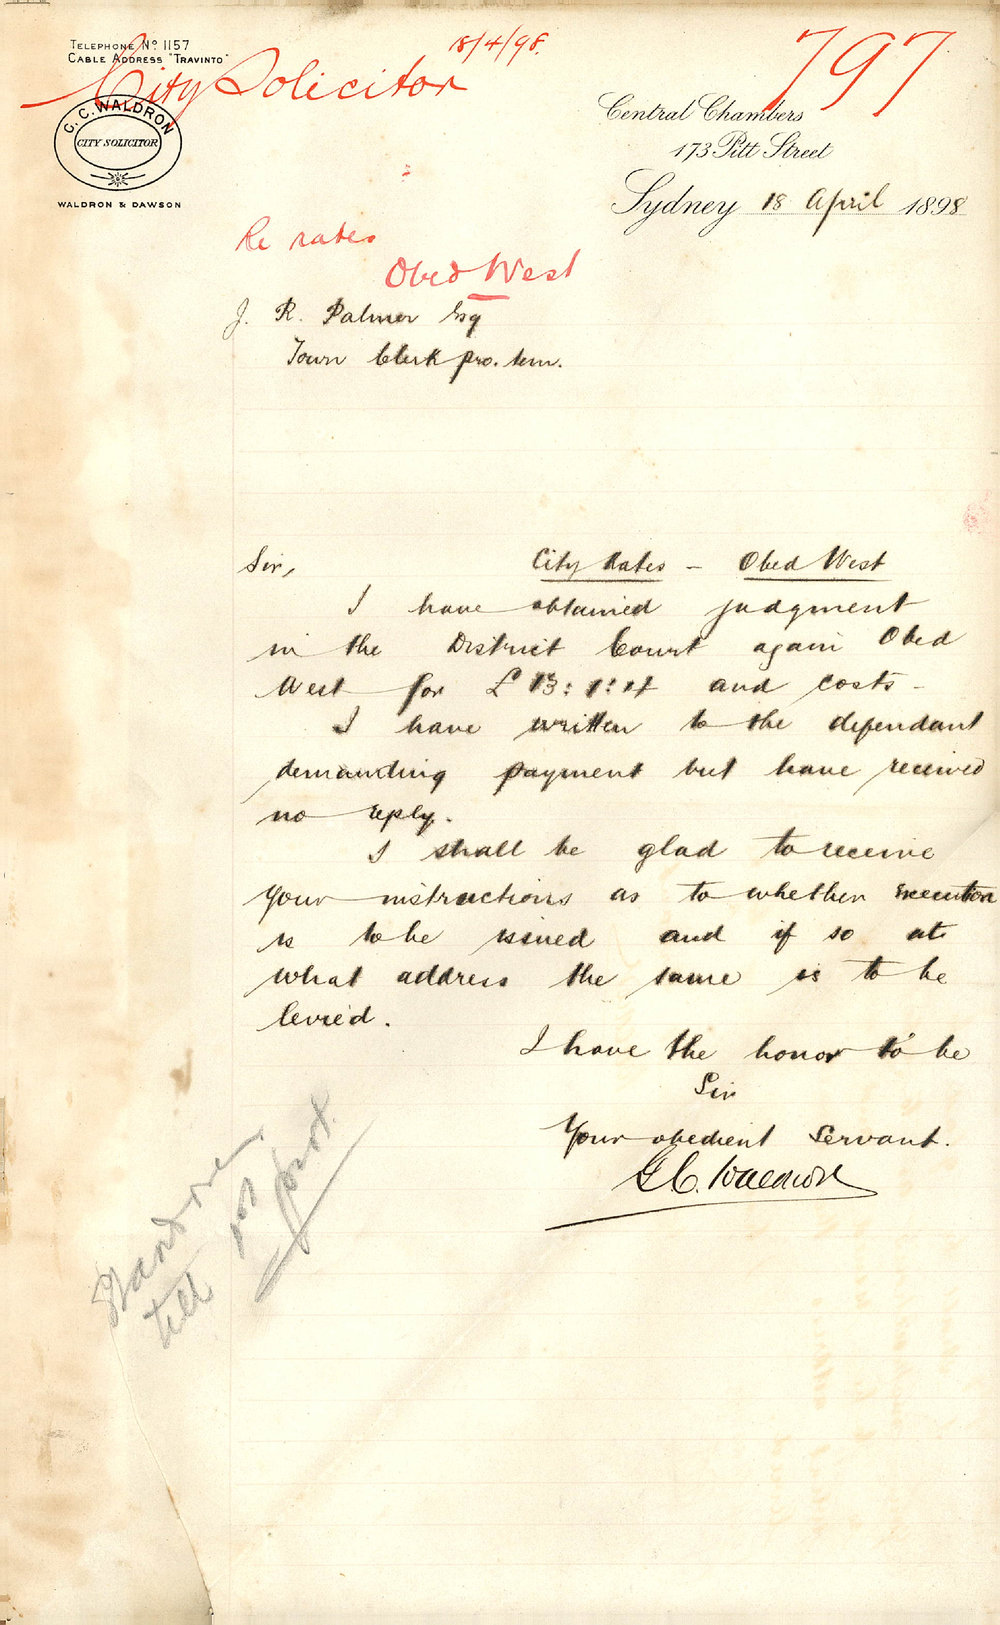 TELEPHONE No 1157
CABLE ADDRESS "TRAVINTO"
City Solicitor
18/4/98.
797
G. C. WALDRON
CITY SOLICITOR
WALDRON & DAWSON
Central Chambers
173 Pitt Street
Sydney 18 April 1898
Re rates
Obed West
J. R. Palmer Esq
Town Clerk pro. tem.
Sir, City Rates - Obed West
I have obtained judgment
in the District Court again Obed
West for £ 13: 1: and costs -
I have written to the dependant
demanding payment but have received
no reply.
I shall be glad to receive
your instructions as to whether execution
is to be issued and if so at
what address the same is to be
levied.
I have the honor to be
Sir
Your obedient Servant.
G C. Waldron
Stand over
till prox.